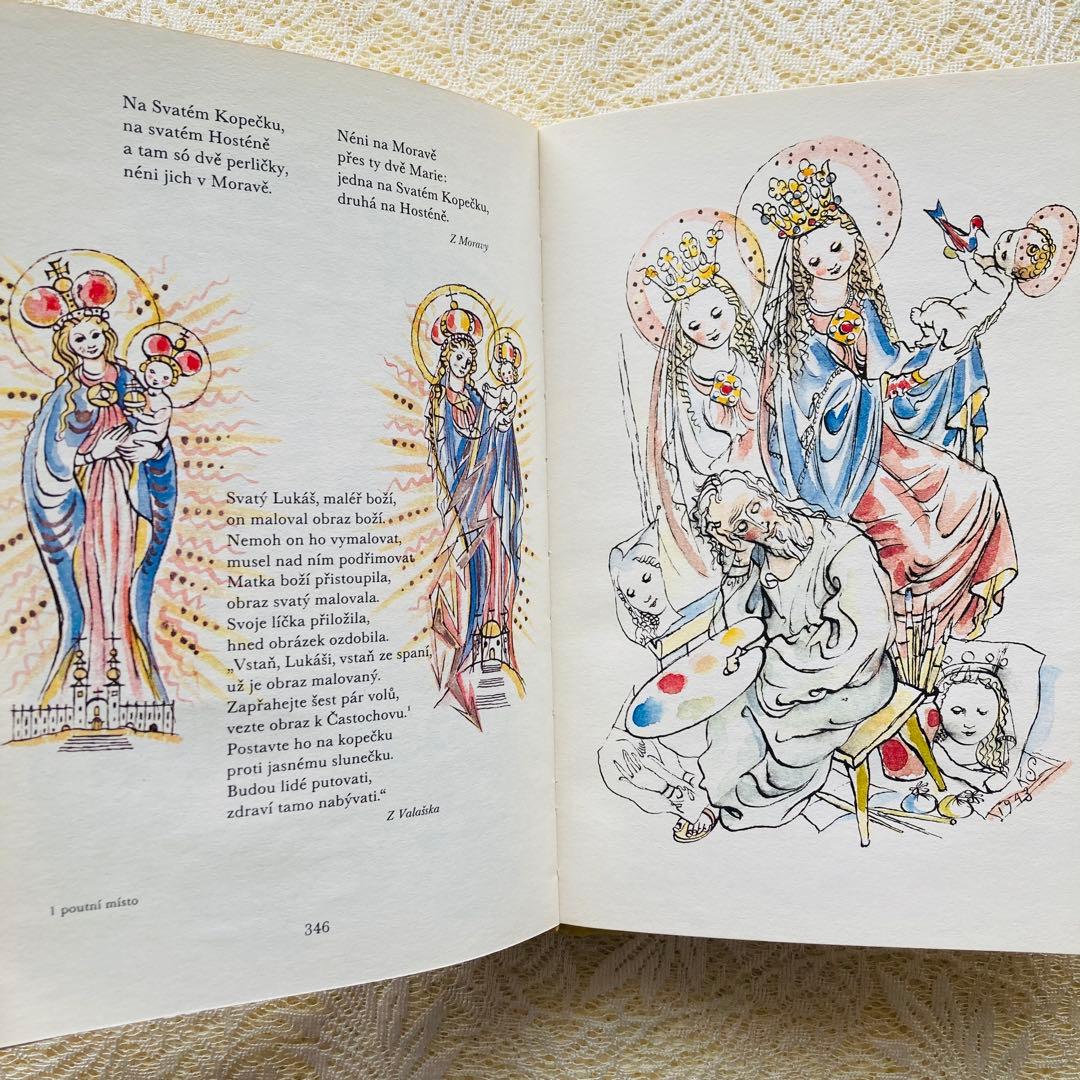 Na Svatém Kopečku,
na svatém Hosténě
a tam só dvě perličky,
néni jich v Moravě.
Néni na Moravě
přes ty dvě Marie:
jedna na Svatém Kopečku,
druhá na Hosténě.
Z Moravy
Svatý Lukáš, maléř boží,
on maloval obraz boží.
Nemoh on ho vymalovat,
musel nad ním podřimovat
Matka boží přistoupila,
obraz svatý malovala.
Svoje líčka přiložila,
hned obrázek ozdobila.
„Vstaň, Lukáši, vstaň ze spaní,
už je obraz malovaný.
Zapřahejte šest pár volů,
vezte obraz k Častochovu.¹
Postavte ho na kopečku
proti jasnému slunečku.
Budou lidé putovati,
zdraví tamo nabývati.“
Z Valašska
1 poutní místo
346